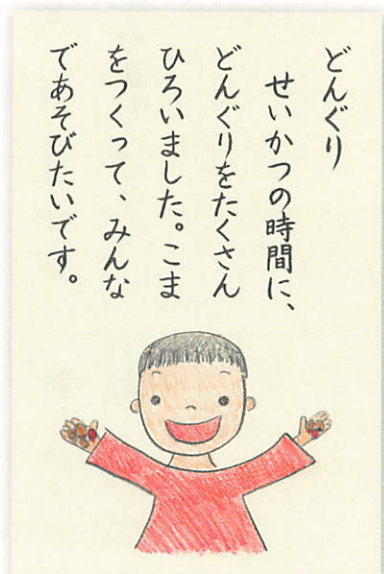 どんぐり
せいかつの時間に、
どんぐりをたくさん
ひろいました。こま
をつくって、みんな
であそびたいです。